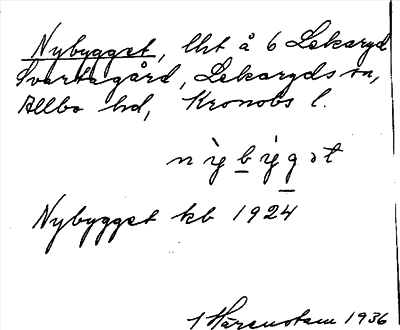 Nybygget, lht å 6 Lekaryd
Svartagård, Lekaryds sn,
Allbo hd, Kronobs l.
nỳbýgət
Nybygget kb 1924
1 Härenstam 1936